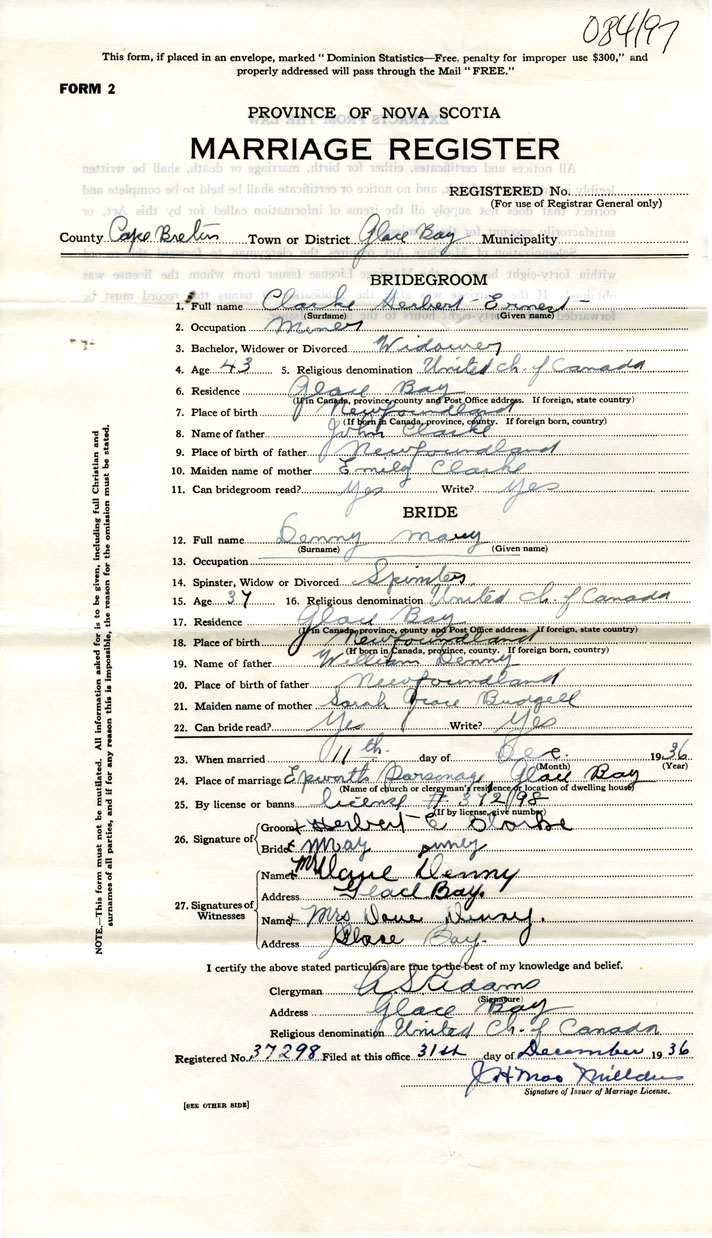 084197
This form, if placed in an envelope, marked " Dominion Statistics—Free, penalty for improper use $300," and
properly addressed will pass through the Mail " FREE."
FORM 2
PROVINCE OF NOVA SCOTIA
MARRIAGE REGISTER
REGISTERED No.
(For use of Registrar General only)
County Cape Breton Town or District Glace Bay Municipality
BRIDEGROOM
1. Full name Clarke Herbert Ernest
(Surname) (Given name)
2. Occupation Miner
3. Bachelor, Widower or Divorced Widower
4. Age 43 5. Religious denomination United Ch. of Canada
6. Residence Glace Bay
(If in Canada, province, county and Post Office address. If foreign, state country)
7. Place of birth Newfoundland
(If born in Canada, province, county. If foreign born, country)
8. Name of father John Clarke
9. Place of birth of father Newfoundland
10. Maiden name of mother Emily Clarke
11. Can bridegroom read? Yes Write? Yes
BRIDE
12. Full name Denny Mary
(Surname) (Given name)
13. Occupation
14. Spinster, Widow or Divorced Spinster
15. Age 37 16. Religious denomination United Ch. of Canada
17. Residence Glace Bay
(If in Canada, province, county and Post Office address. If foreign, state country)
18. Place of birth Newfoundland
(If born in Canada, province, county. If foreign born, country)
19. Name of father William Denny
20. Place of birth of father Newfoundland
21. Maiden name of mother Sarah Grace Budgell
22. Can bride read? Yes Write? Yes
23. When married 11th day of Dec. 1936
(Month) (Year)
24. Place of marriage Epworth Parsonage Glace Bay
(Name of church or clergyman's residence or location of dwelling house)
25. By license or banns license # 37298
(If by license, give number)
26. Signature of
Groom Herbert E Clarke
Bride May
27. Signatures of Witnesses
Name Mr Denny
Address Glace Bay.
Name Mrs Dave Denny.
Address Glace Bay.
I certify the above stated particulars are true to the best of my knowledge and belief.
Clergyman A S Adams
(Signature)
Address Glace Bay
Religious denomination United Ch. of Canada
Registered No. 37298 Filed at this office 31st day of December 1936
Signature of Issuer of Marriage License.
[SEE OTHER SIDE]
NOTE.—This form must not be mutilated. All information asked for is to be given, including full Christian and
surnames of all parties, and if for any reason this is impossible, the reason for the omission must be stated.